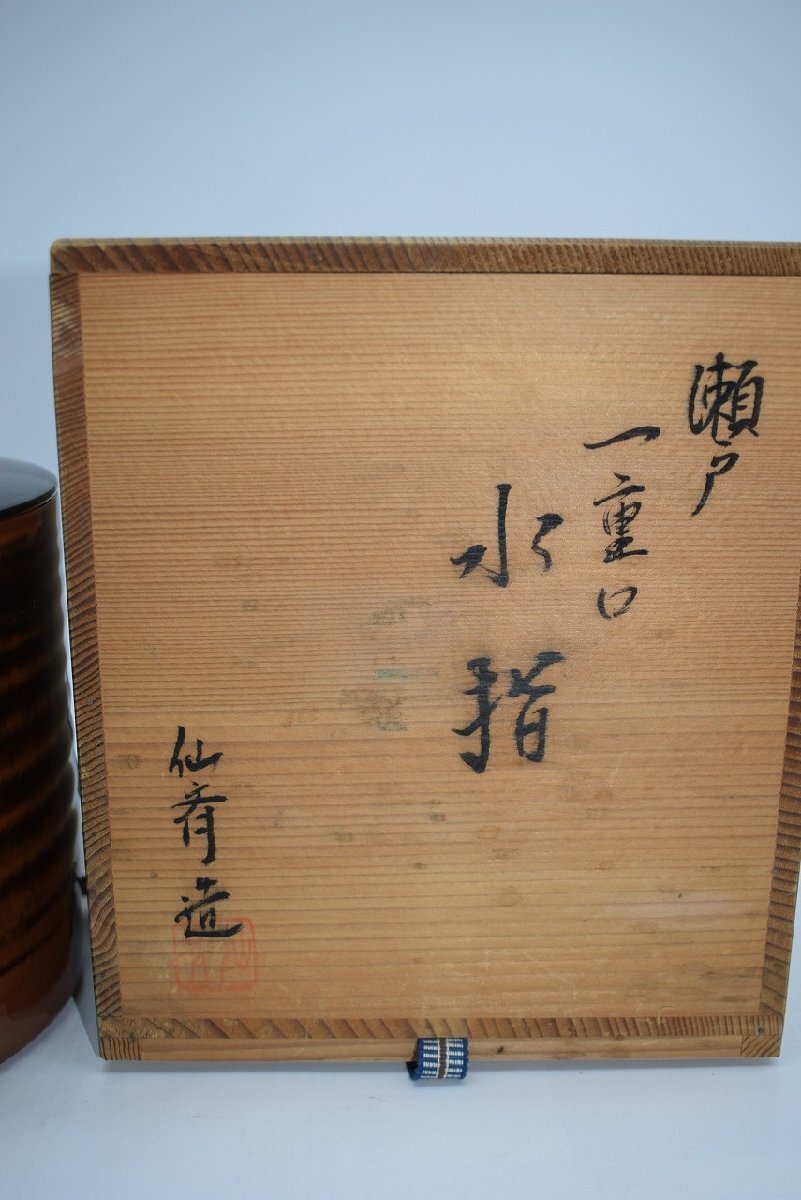 瀬戸
一重口
水指
仙斉造